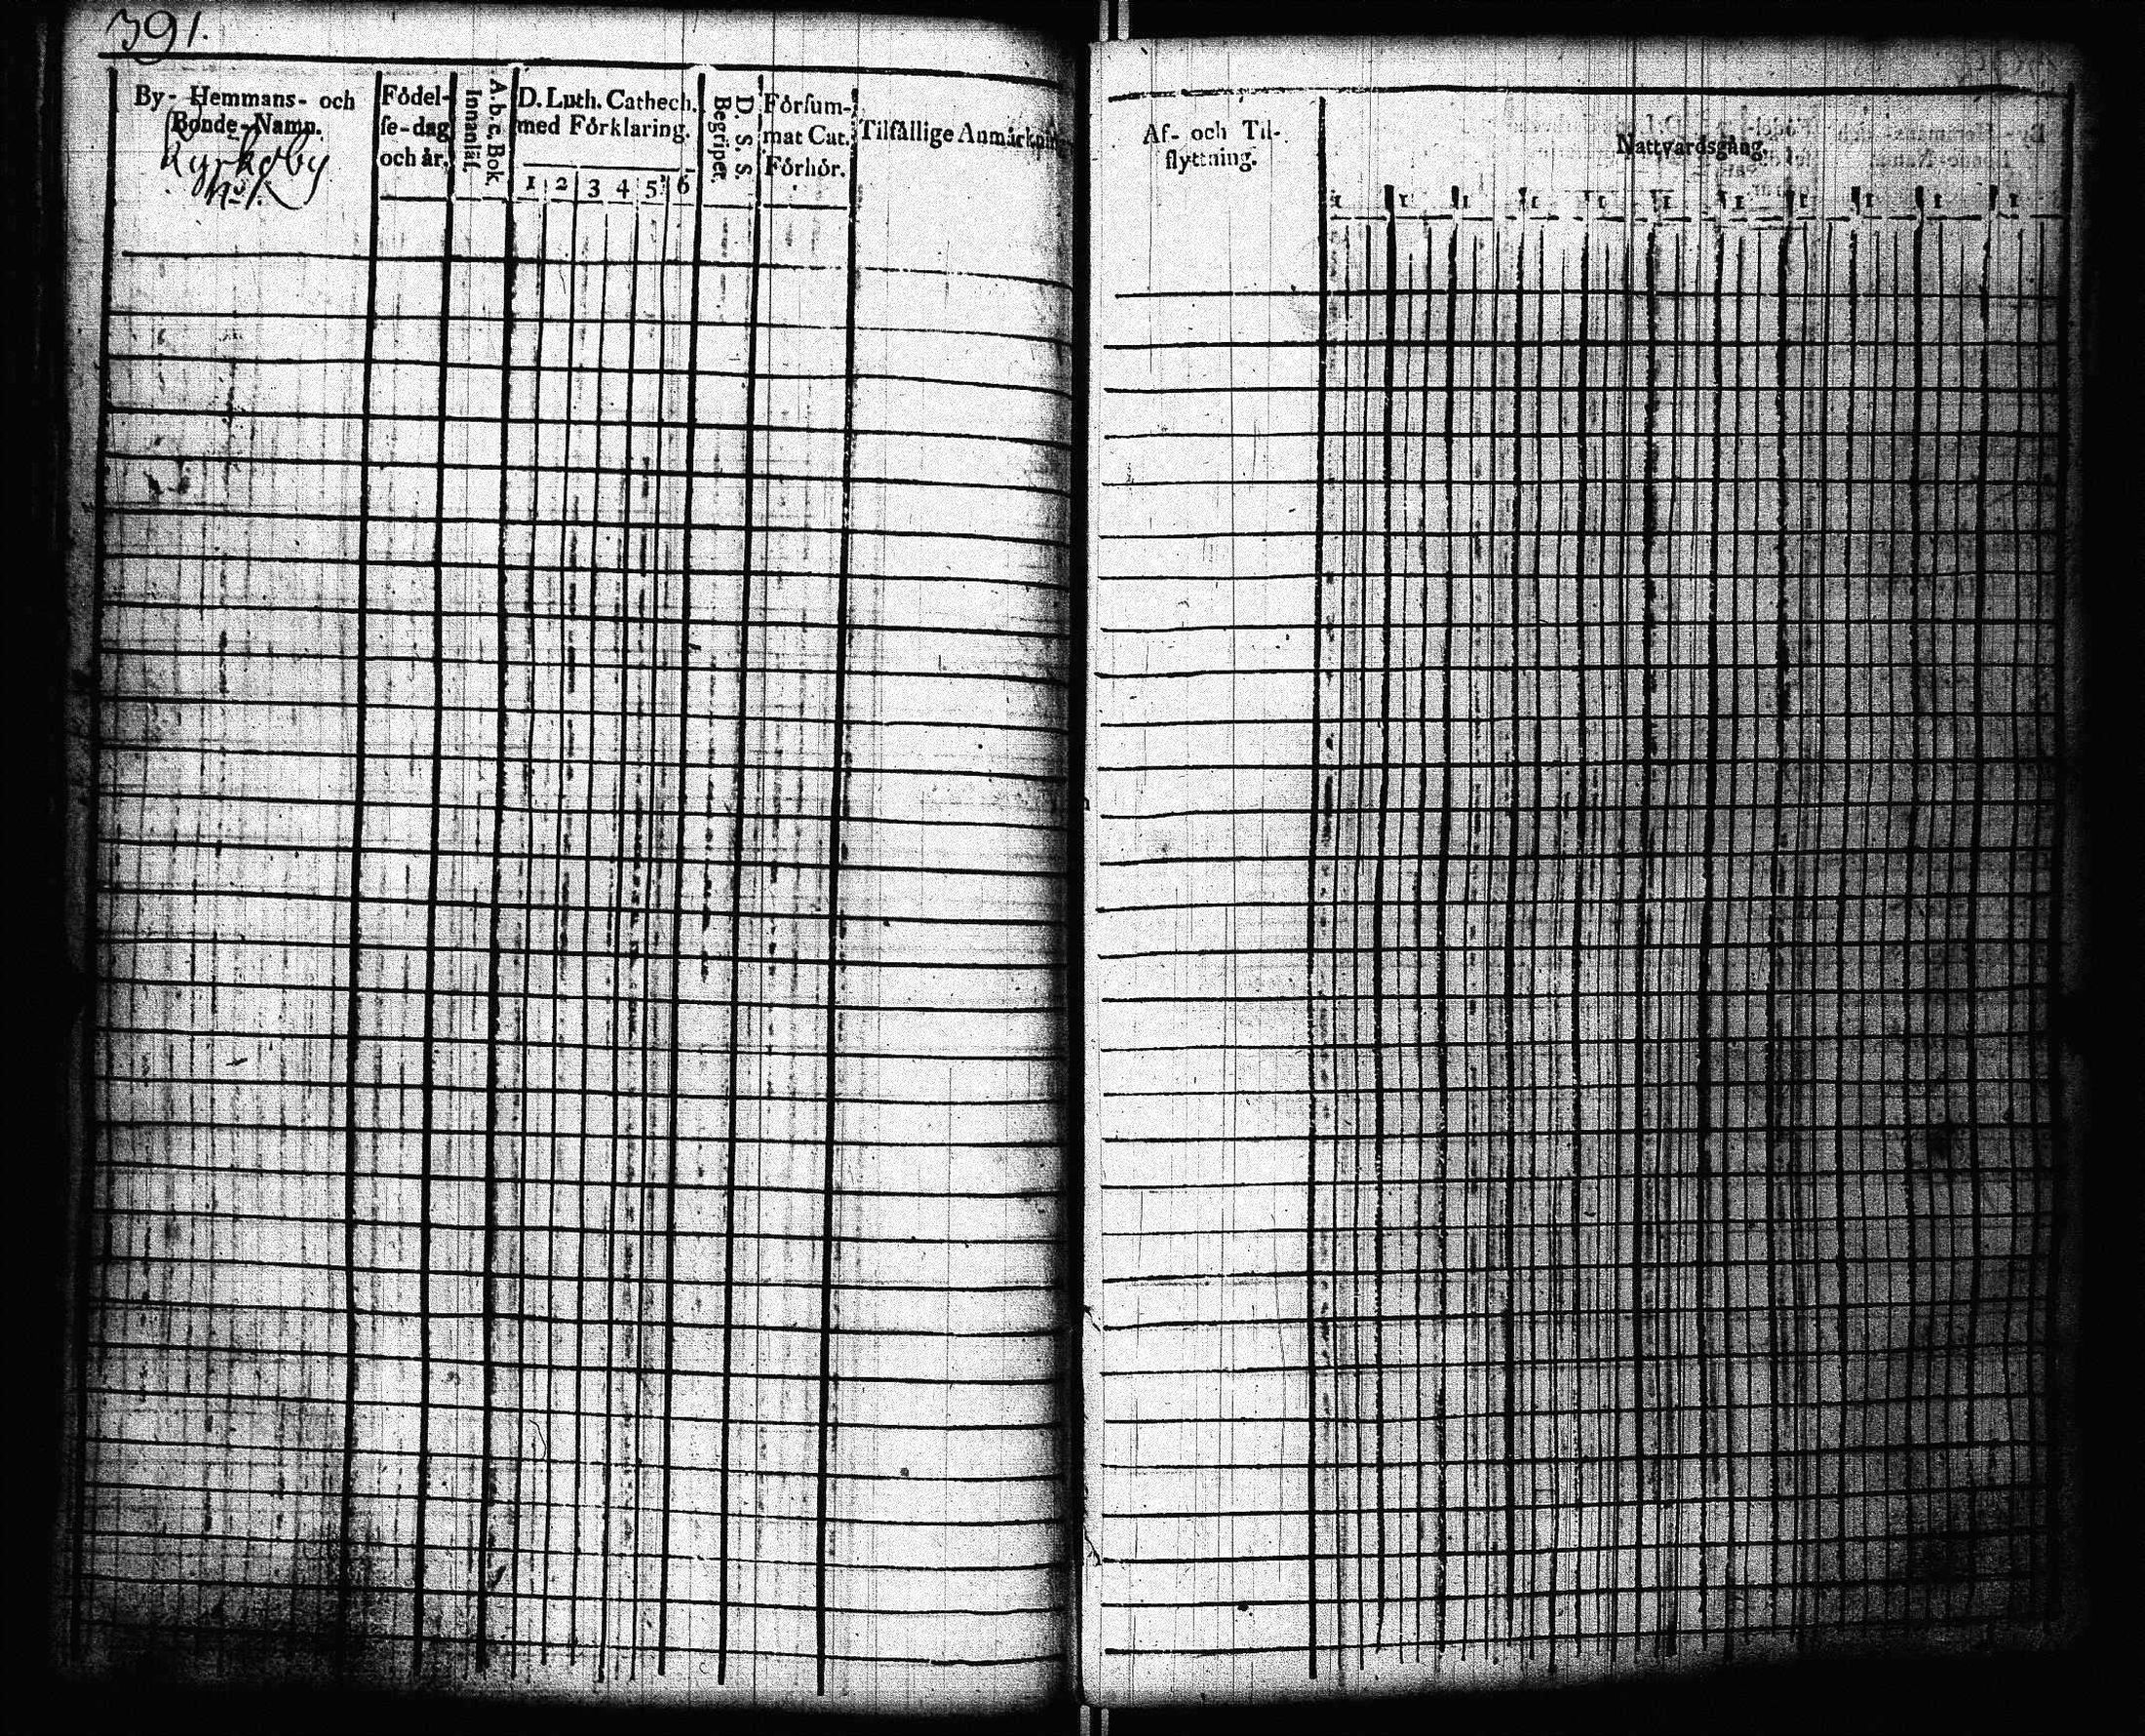 391.
By- Hemmans- och
Bonde-Namn.
Kyrkoby
N:o 1.
Födel-
se-dag
och år.
A. b. c. Bok.
Innanläs.
D. Luth. Cathech.
med Förklaring.
1 2 3 4 5 6
D. S. S.
Begriper.
Försum-
mat Cat.
Förhör.
Tilfällige Anmärkning
Af- och Til-
flyttning.
Nattvardsgång.
1 1 1 1 1 1 1 1 1 1 1